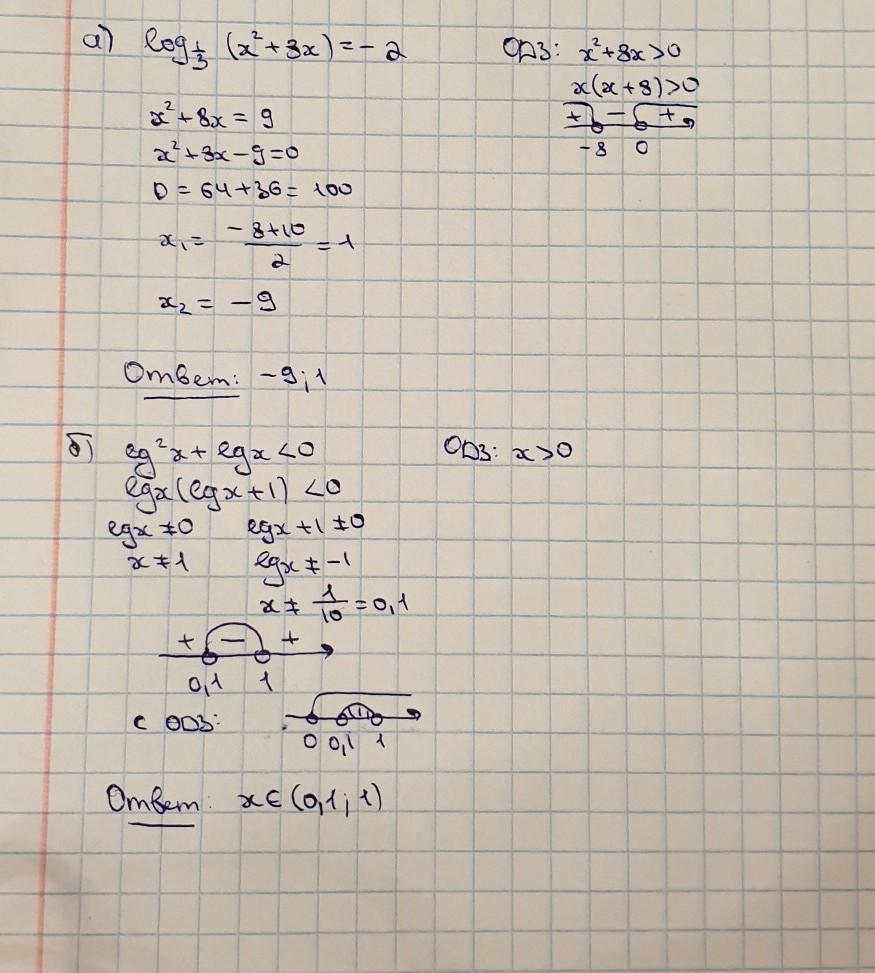 а) log_{1/3} (x² + 8x) = - 2
ОДЗ: x² + 8x > 0
x(x + 8) > 0
+ - +
-8 0
x² + 8x = 9
x² + 8x - 9 = 0
D = 64 + 36 = 100
x₁ = (-8 + 10)/2 = 1
x₂ = -9
Ответ: -9; 1
б) lg²x + lgx < 0
ОДЗ: x > 0
lgx(lgx + 1) < 0
lgx ≠ 0 lgx + 1 ≠ 0
x ≠ 1 lgx ≠ -1
x ≠ 1/10 = 0,1
+ - +
0,1 1
с ОДЗ:
0 0,1 1
Ответ: x ∈ (0,1; 1)